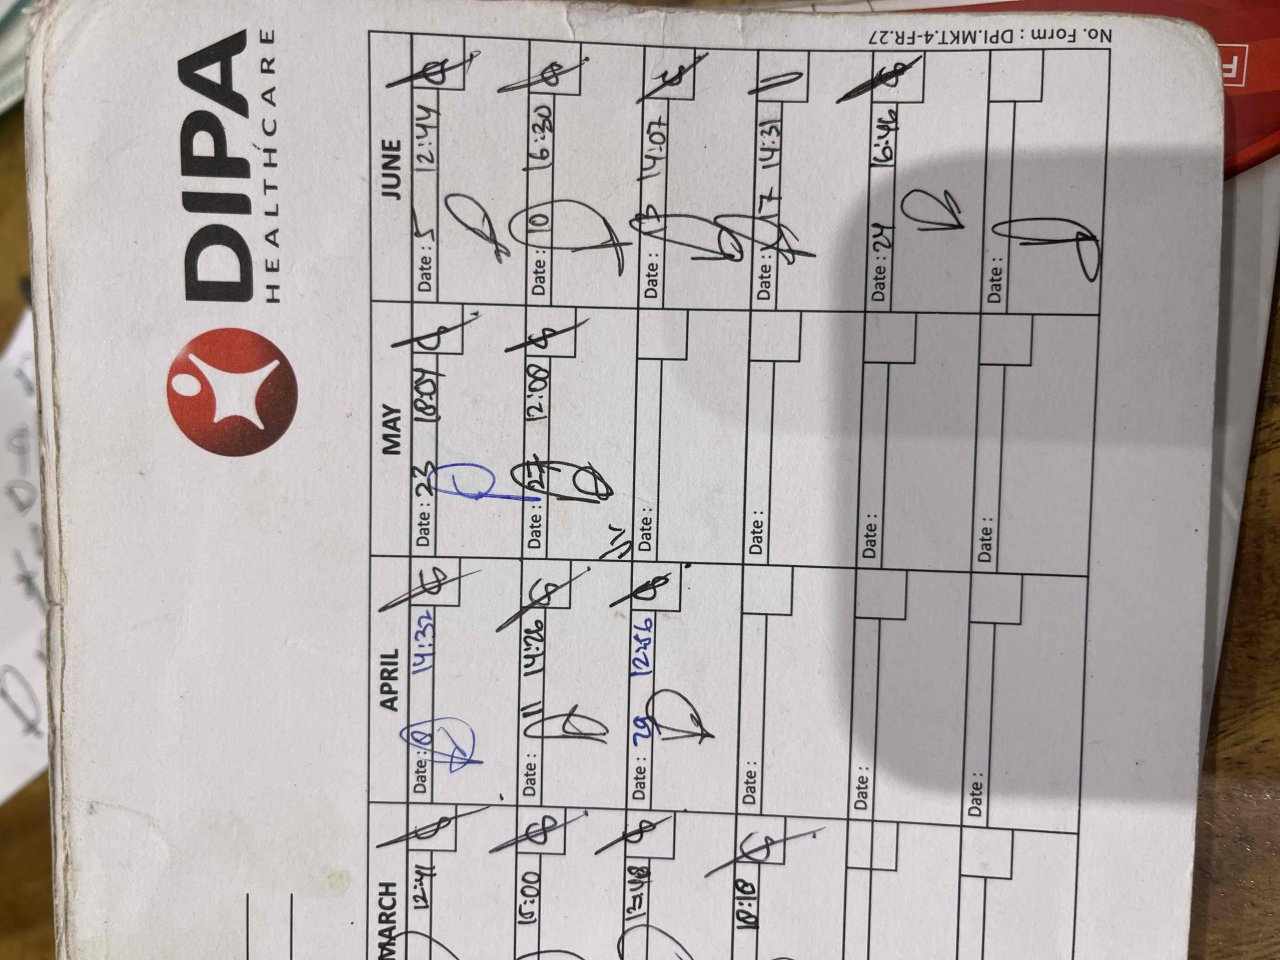 DIPA
HEALTHCARE
No. Form : DPI.MKT.4-FR.27
MARCH
12:41
15:00
13:48
18:18
APRIL
Date : 8 14:32
Date : 11 14:26
Date : 29 12:56
Date :
Date :
Date :
MAY
Date : 23 18:04
Date : 27 12:00
Date :
Date :
Date :
Date :
JUNE
Date : 5 12:44
Date : 10 16:30
Date : 13 14:07
Date : 17 14:31
Date : 24 16:46
Date :